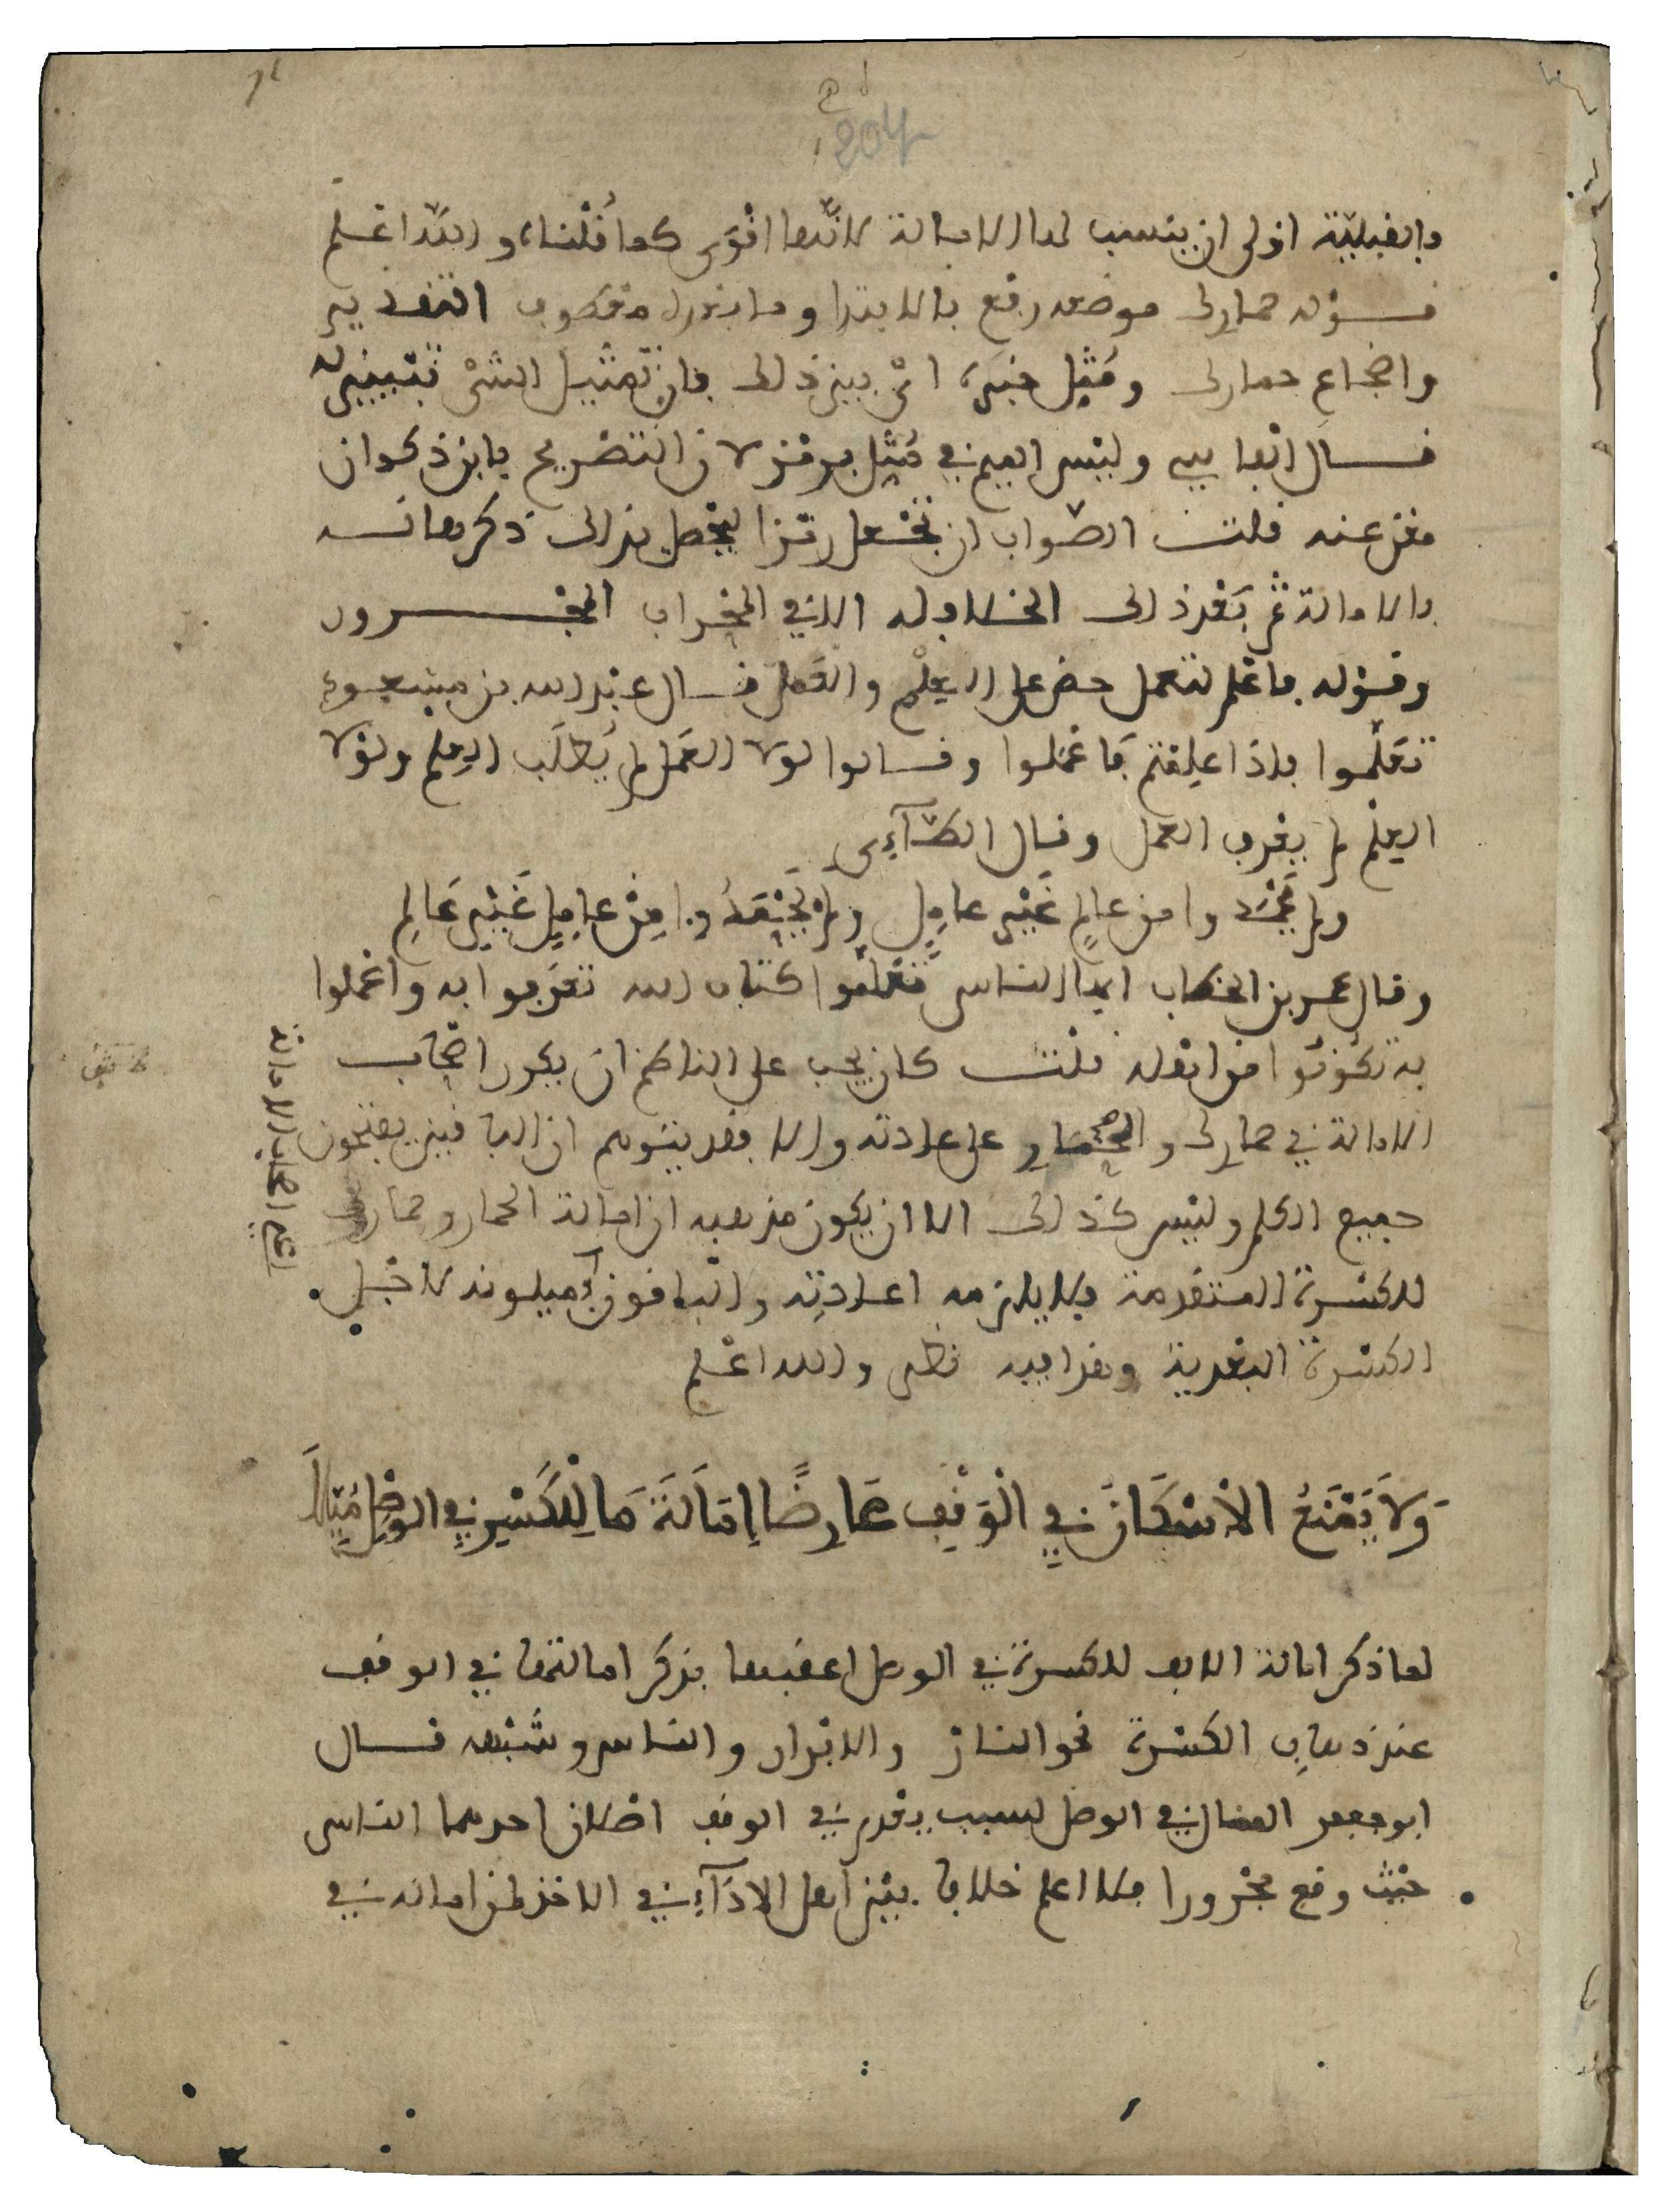 204
فالقبلية اولى ان ينسب لها الامالة لانها اقوى كما قلناه والله اعلم
قوله حمارك موضعه رفع بالابتدا وما بعده معطوف التقدير
واضجاع حمارك ومثل خبره اي بين ذلك فان تمثيل الشئ تبيين له
قال الفاسي وليس الميم في مثل برمز لان التصريح بابن ذكوان
مغن عنه قلت الصواب ان تجعل رمزا ليحصل بذلك ذكرهما نسه
بالامالة ثم بعد ذلك الخلاف له الا في المحراب المجرور
وقوله فاعلم لتعمل حض على العلم والعمل قال عبد الله بن مسعود
تعلموا فاذا علمتم فاعملوا وقالوا لولا العمل لم يطلب العلم ولولا
العلم لم يعرف العمل وقال الطاءى
ولم يحمدوا من عالم غير عامل ولم يحمدوا من عامل غير عالم
وقال عمر بن الخطاب ايها الناس تعلموا كتاب الله تعرفوا به واعملوا
به تكونوا من اهله قلت كان يجب على الناظم ان يكرر اصحاب
الامالة في حمارك والحمار على عادته والا فقد يتوهم ان الباقين يفتحون
جميع الكلم وليس كذلك الا ان يكون مذهبه ان امالة الحمار وحمارك
للكسرة المتقدمة فلا يلزمه اعادته والباقون يميلونه لاجل
الكسرة البعدية وهذا فيه نظر والله اعلم
وَلاَ يَمْنَعُ الاْسْكَانُ فِي الْوَقْفِ عَارِضًا اِمَالَةَ مَا لِلْكَسْرِ فِي الوصْلِ مُيِّلاَ
لما ذكر امالة الالف للكسرة في الوصل اعقبها بذكر امالتها في الوقف
عند ذهاب الكسرة نحو النار والابرار والناس وشبهه قال
ابو جعفر الممال في الوصل لسبب يعدم في الوقف اصلان احدهما الناس
حيث وقع مجرورا فلا اعلم خلافا بين اهل الاداء في الاخذ لمن اماله في